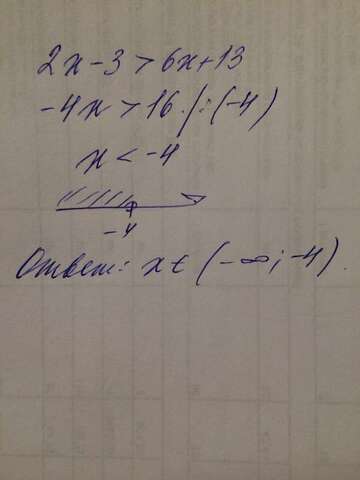 2x - 3 > 6x + 13
-4x > 16 /:(-4)
x < -4
-4
Ответ: x ∈ (-∞; -4).